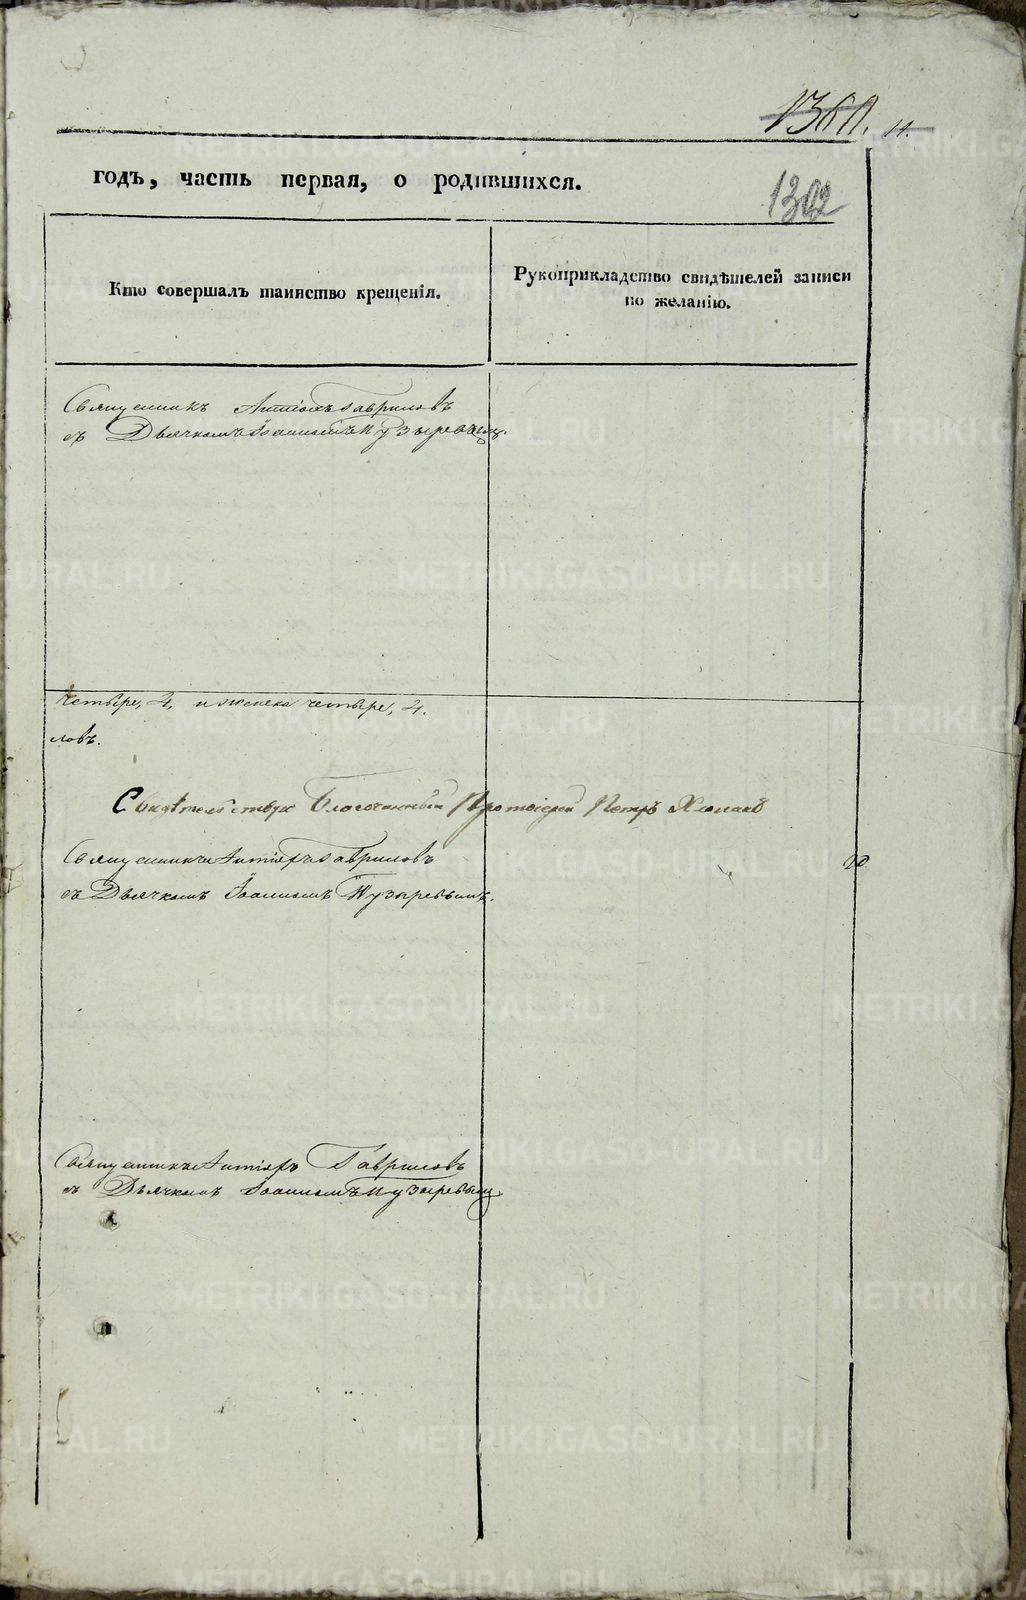 11.
годъ, часть первая, о родившихся.
1302
Кто совершалъ таинство крещенія.
Рукоприкладство свидѣтелей записи
по желанію.
Священникъ Гавриловъ
съ Дьячкомъ Іоанномъ Пузыревым.
четыре, 4, и женска четыре, 4.
ловъ.
Свидѣтельствую Благочинный Протоіерей Петръ
Священникъ Гавриловъ
съ Дьячкомъ Іоанномъ Пузыревымъ.
Священникъ Гавриловъ
съ Дьячкомъ Іоанномъ Пузыревым.
METRIKI.GASO-URAL.RU